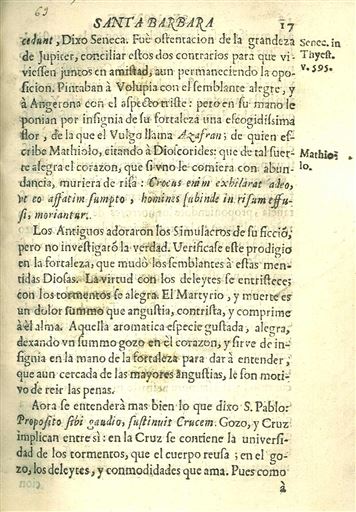 63
SANTA BARBARA 17
cedunt, Dixo Seneca. Fuè ostentacion de la grandeza
de Jupiter, conciliar estos dos contrarios para que vi-
viessen juntos en amistad, aun permaneciendo la opo-
sicion. Pintaban à Volupia con el semblante alegre, y
à Angerona con el aspecto triste: pero en su mano le
ponian por insignia de su fortaleza una escogidissima
flor, de la que el Vulgo llama Azafran; de quien es-
cribe Mathiolo, citando à Dioscorides: que de tal suer-
te alegra el corazon, que si vno le comiera con abun-
dancia, muriera de risa: Crocus enim exhilarat adeo,
vt eo affatim sumpto, homines subinde in risum effu-
si, moriantur.
Senec. in
Thyest.
v. 595.
Mathio-
lo.
Los Antiguos adoraron los Simulacros de su ficciõ,
pero no investigarõ la verdad. Verificase este prodigio
en la fortaleza, que mudò los semblantes à estas men-
tidas Diosas. La virtud con los deleytes se entristece;
con los tormentos se alegra. El Martyrio, y muerte es
un dolor summo que angustia, contrista, y comprime
à el alma. Aquella aromatica especie gustada, alegra,
dexando vn summo gozo en el corazon, y sirve de in-
signia en la mano de la fortaleza para dar à entender,
que aun cercada de las mayores angustias, le son moti-
vo de reir las penas.
Aora se entenderà mas bien lo que dixo S. Pablo:
Proposito sibi gaudio, sustinuit Crucem. Gozo, y Cruz
implican entre sì: en la Cruz se contiene la universi-
dad de los tormentos, que el cuerpo reusa; en el go-
zo, los deleytes, y conmodidades que ama. Pues como
à